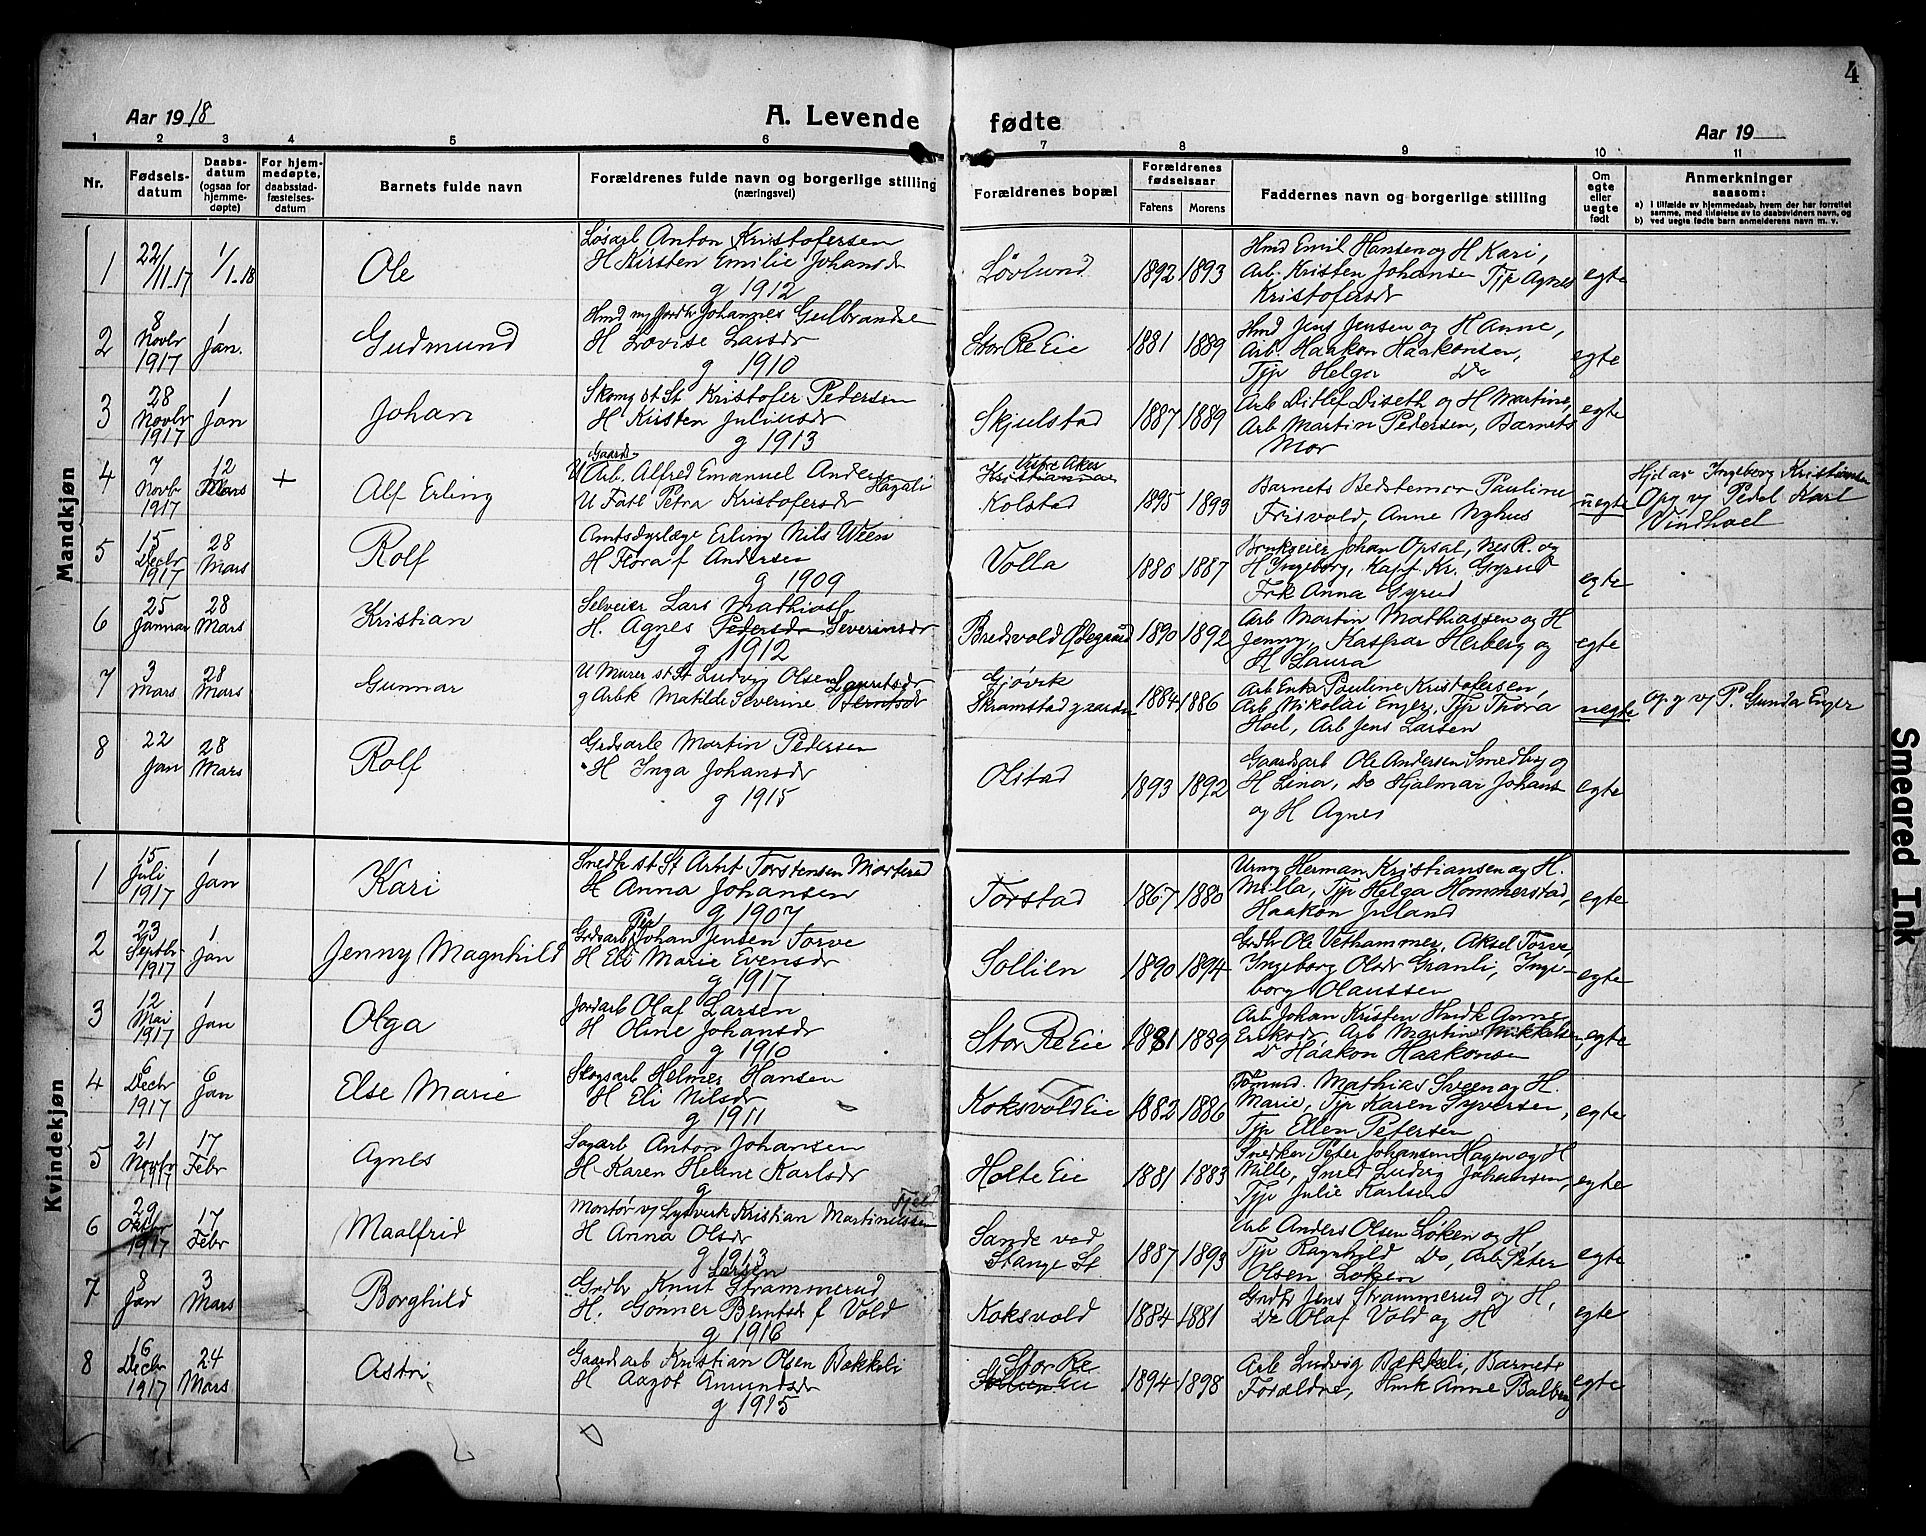 4
Aar 1918
A. Levende fødte
Aar 19
1 2 3 4 5 6 7 8 9 10 11
Nr.
Fødsels-
datum
Daabs-
datum
(ogsaa for
hjemme-
døpte)
For hjem-
medøpte,
daabsstad-
fæstelses-
datum
Barnets fulde navn
Forældrenes fulde navn og borgerlige stilling
(næringsvei)
Forældrenes bopæl
Forældrenes
fødselsaar
Farens
Morens
Faddernes navn og borgerlige stilling
Om
egte
eller
uegte
født
Anmerkninger
saasom:
a) I tilfælde av hjemmedaab, hvem der har forrettet
samme, med tilføielse av to daabsvidners navn, og
b) ved uegte fødte barn anmelderens navn m. v.
Mandkjøn
1
22/11-17
1/1-18
Ole
Løsarb Anton Kristofersen
H Kirsten Emilie Johansdr
g 1912
Løvlund
1892 1893
Hmd Emil Hansen og H Kari,
Arb. Kristen Johansen Tjp Agnes
Kristofersdr
egte
2
8
Novbr
1917
1
Jan.
Gudmund
Hmd Johannes Gulbrandse
H Lovise Larsdr
g 1910
Stor Re Eie
1881 1889
Hmd Jens Jensen og H Anne,
Arb. Haakon Haakonsen,
Tjp Helga Do
egte
3
28
Novbr
1917
1
Jan
Johan
Skomg st St Kristofer Pedersen
H Kristen Juliusdr
g 1913
Skjulstad
1887 1889
Arb Ditlef Diseth og H Martine,
Arb Martin Pedersen, Barnets
Mor
egte
4
7
Novb
1917
12
Mars
+
Alf Erling
Gaards
U Arb. Alfred Emanuel Andersen
Hagali
U Fabl Petra Kristofersdr
Vestre Aker
Kristiania
Kolstad
1895 1893
Barnets Bedstemor Pauline
Frisvold, Anne Nyhus
uegte
Hjd av Ingeborg Kristiansen
Opg vj Pedel Karl
Vindhoel
5
15
Decbr
1917
28
Mars
Rolf
Amtsdyrlæge Erling Nils Ween
H Flora f Andersen
g 1909
Volla
1880 1887
Brukseier Johan Opsal, Nes R. og
H Ingeborg, Kapt Kr. Gyrud
Frk Anna Gyrud
egte
6
25
Januar
28
Mars
Kristian
Selveier Lars Mathiass
H. Agnes Pedersdr Severinsdr
g 1912
Bredsvold Ødegaard
1890 1892
Arb Martin Mathiassen og H
Jenny, Kaspar Herberg og
H Laura
egte
7
3
Mars
28
Mars
Gunnar
U Murer st St Ludvig Olsen
Lauritsdr
g Arbk Matilde Severine Berntsdr
Gjøvik
Skramstadgaarden
1884 1886
Arb Enke Pauline Kristofersen,
Arb Mikolai Enger, Tjp Thora
Hoel, Arb Jens Larsen
uegte
Opg vj P. Gunda Enger
8
22
Jan
28
Mars
Rolf
Grdsarb Martin Pedersen
H Inga Johansdr
g 1915
Olstad
1893 1892
Gaardsarb Ole Andersen Smedbg og
H Lina, Do Hjalmar Johans
og H Agnes
egte
Kvindekjøn
1
15
Juli
1917
1
Jan
Kari
Snedk st St Arnt Torstensen Morterud
H Anna Johansen
g 1907
Torstad
1867 1880
Urmg Herman Kristiansen og H.
Milla, Tjp Helga Hommerstad,
Haakon Juland
egte
2
23
Septbr
1917
1
Jan
Jenny Magnhild
Per
Grdsarb Johan Jensen Torve
H Eli Marie Evensdr
g 1917
Sollien
1890 1894
Grdbr Ole Vethammer, Aksel Torve,
Ingeborg Olsdr Granli, Inge-
borg Olaussen
egte
3
12
Mai
1917
1
Jan
Olga
Jordarb Olaf Larsen
H Oline Johansdr
g 1910
Stor Re Eie
1881 1889
Arb Johan Kristen Anne
Eriksdr Arb Martin Mikkelsen,
Do Haakon Haakonsen
egte
4
6
Decbr
1917
6
Jan
Else Marie
Skogsarb Helmer Hansen
H Eli Nilsdr
g 1911
Koksvold Eie
1882 1886
Tømmd. Mathias Sveen og H.
Marie, Tjp Karen Syversen,
Tjp Ellen Petersen
egte
5
21
Novbr
1917
17
Febr
Agnes
Sagarb Anton Johansen
H Karen Helene Karlsdr
g
Holte Eie
1881 1883
Snedker Peter Johansen Hagen og H
Mille, Smed Ludvig Johansen,
Tjp Julie Karlsen
egte
6
29
Oktbr
1917
17
Febr
Maalfrid
Fjeld
Montør vj Lysverk Kristian Martiniussen
H Anna Olsdr
g 1913
Sande ved
Stange St
1887 1893
Arb Anders Olsen Løken og H,
Tjp Ragnhild Do, Arb Peter
Olsen Løken
egte
7
8
Jan
3
Mars
Borghild
Larsen
Grdbr Knut Strammerud
H. Gonner Berntsdr f Vold
g 1916
Koksvold
1884 1881
Grdbr Jens Strammerud og H,
Do Olaf Vold og H
egte
8
16
Decbr
1917
24
Mars
Astri
Gaardsarb Kristian Olsen Bækkeli
H Aagot Amundsdr
g 1915
Stor Re
Sollien Eie
1894 1898
Arb Ludvig Bækkeli, Barnets
Forældre, Hmk Anne Balberg
egte
Smeared Ink